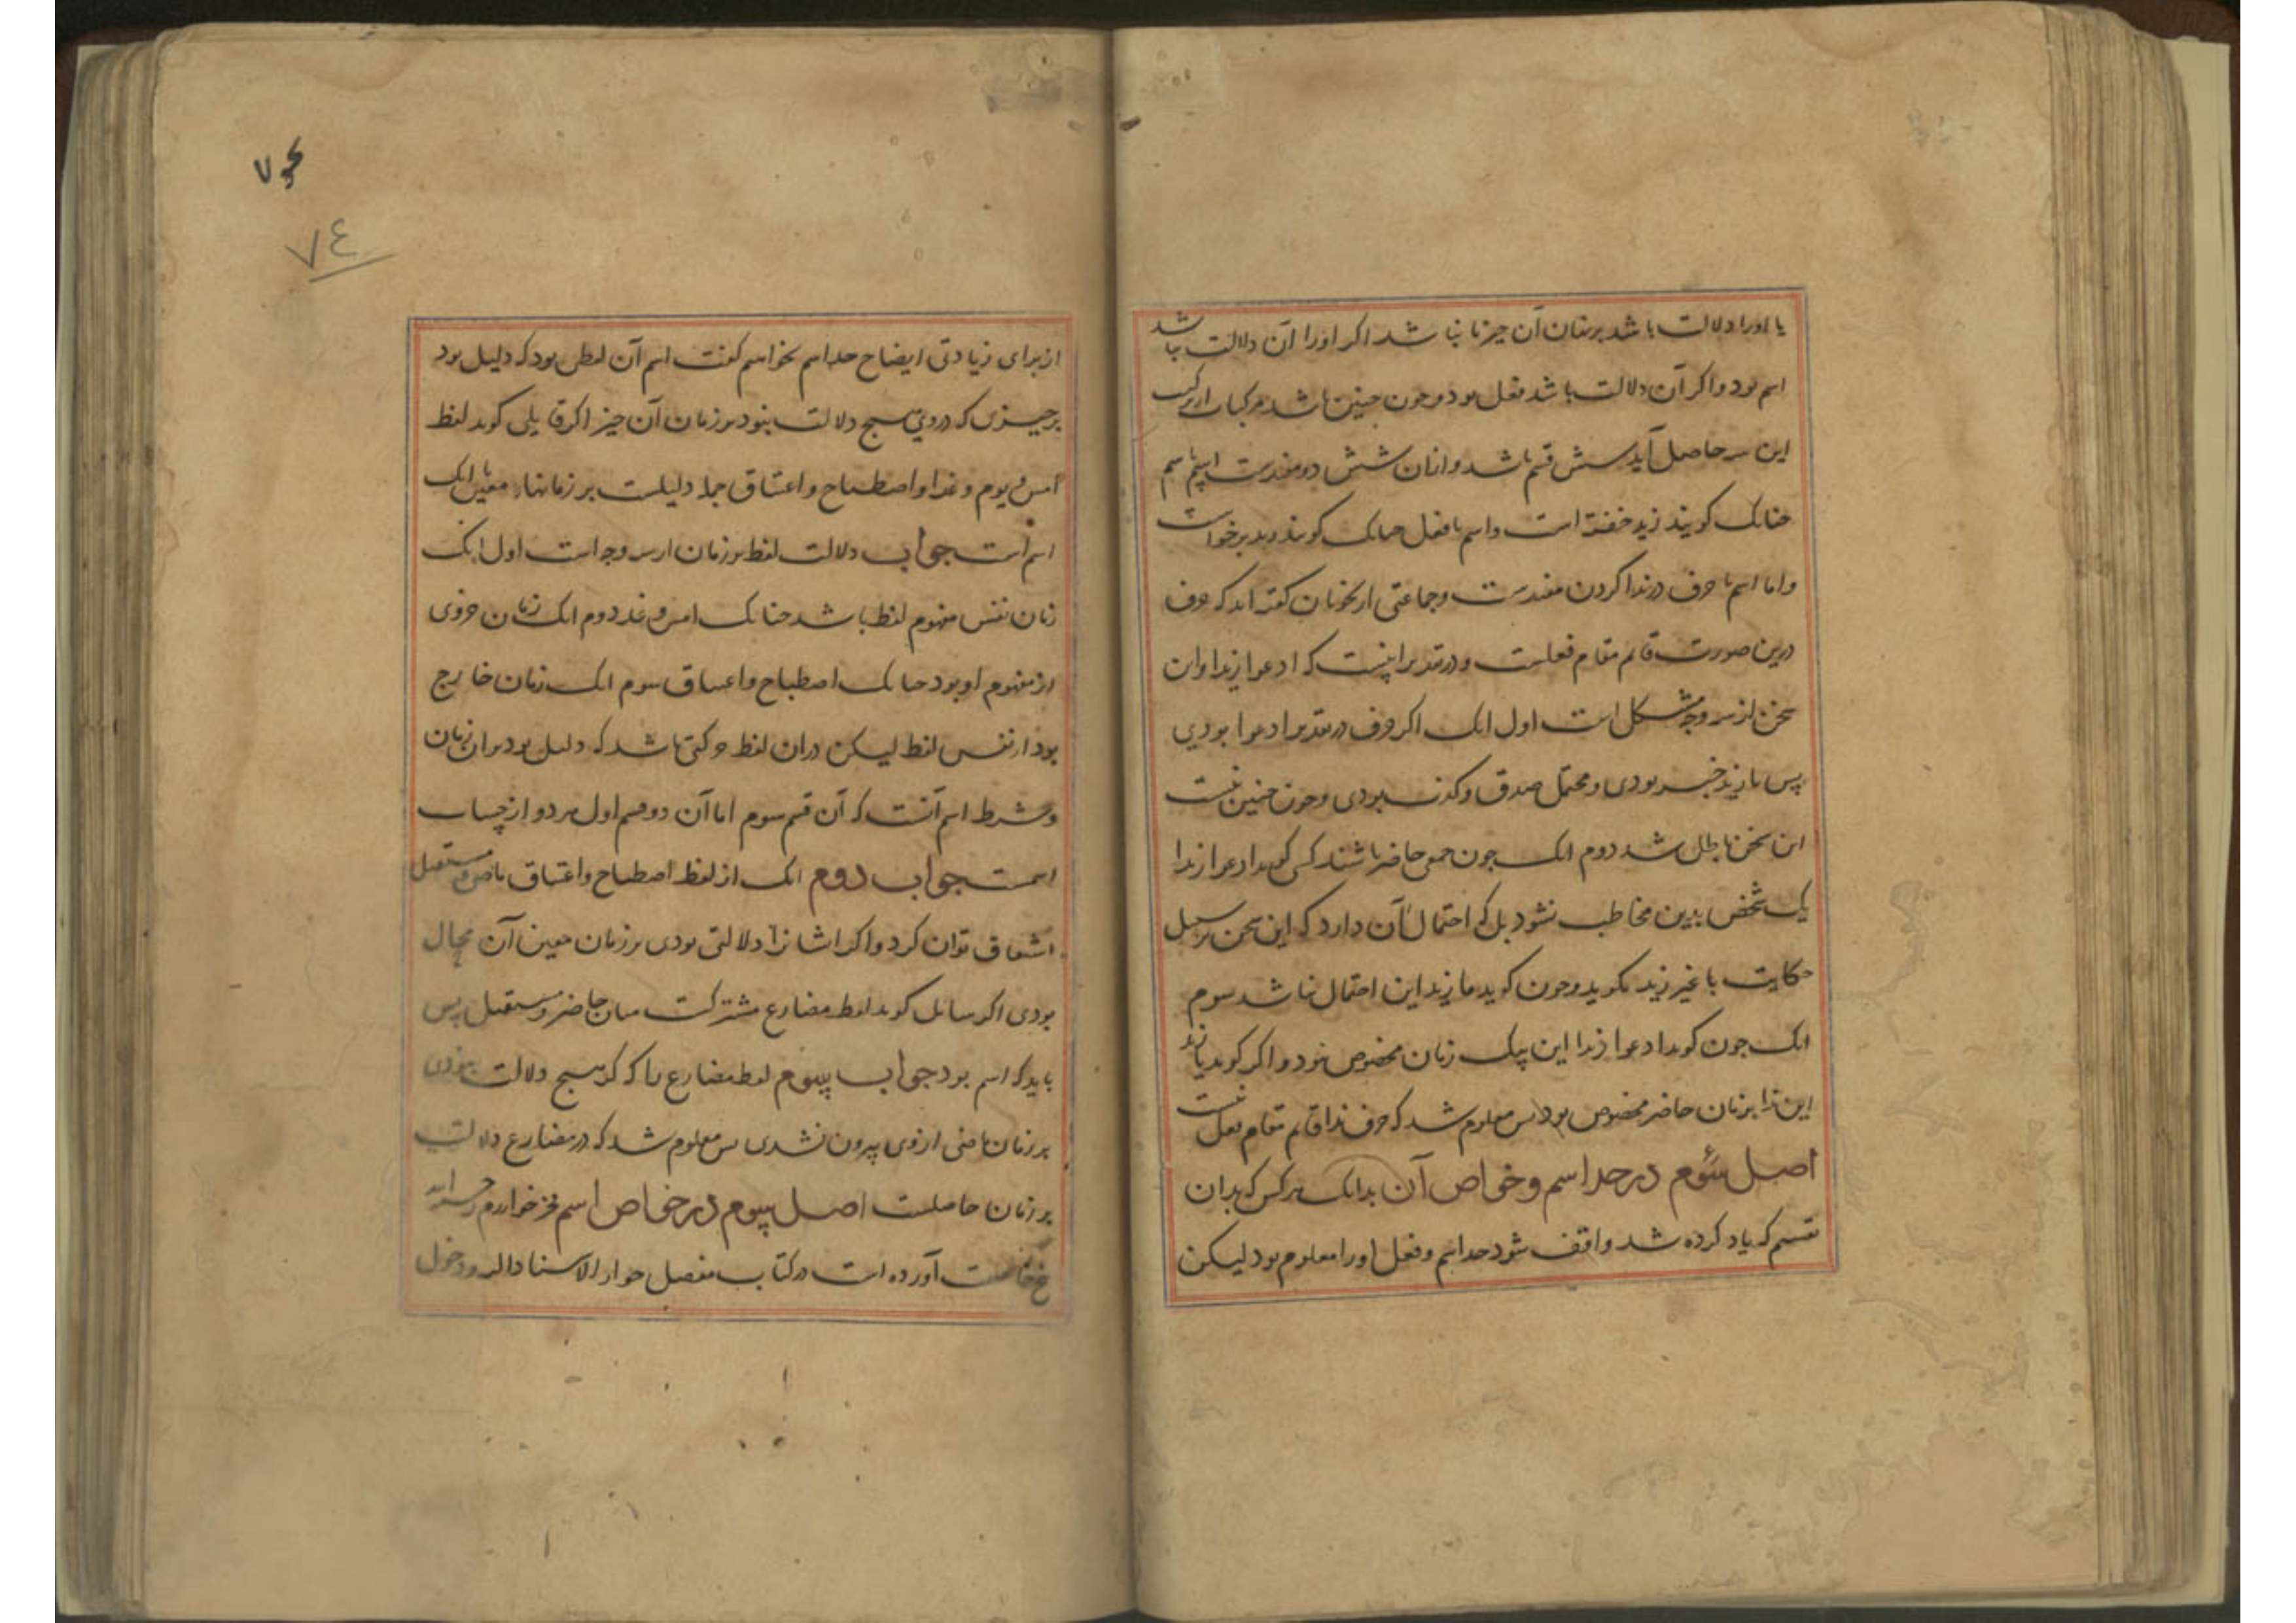 یا اورا دلالت باشد بر زمان آن چیز یا نباشد اکر اورا آن دلالت نباشد
اسم بود واکر آن دلالت باشد فعل بود وجون جنین باشد مرکبات از ترکیب
این سه حاصل آید شش قسم باشد وازان شش دو مفیدست اسم با اسم
جنانک کویند زید خفته است واسم با فعل جنانک کویند زید برخواست
واما اسم با حرف در ندا کردن مفیدست وجماعتی از نحویان کفته اند که حرف
درین صورت قایم مقام فعلست ودر تقدیر اینست که ادعوا زیدا واین
سخن از سه وجه مشکل است اول انک اکر حرف در تقدیر ادعوا بودی
پس یا زید خبر بودی ومحتمل صدق وکذب بودی وجون جنین نیست
این سخن باطل شد دوم انک جون جمعی حاضر باشند کسی کوید ادعوا زیدا
یک شخص بدین مخاطب نشود بل که احتمال آن دارد که این سخن بر سبیل
حکایت با غیر زید میکوید وجون کوید یا زید این احتمال نباشد سوم
انک جون کوید ادعوا زیدا این بیک زمان مخصوص نبود واکر کوید یا زید
این ندا بزمان حاضر مخصوص بود پس معلوم شد که حرف ندا قایم مقام فعل نیست
اصل سوم در حد اسم وخواص آن بدانک هر کس که بدان
تقسیم که یاد کرده شد واقف شود حد اسم وفعل اورا معلوم بود لیکن
۷۴
از برای زیادتی ایضاح حد اسم بخواهیم کفت اسم آن لفظی بود که دلیل بود
بر چیزی که در وی هیج دلالت نبود بر زمان آن چیز اکر قایلی کوید لفظ
امس ویوم وغدا واصطباح واغتباق جمله دلیلست بر زمانهاء معین با انک
اسم است جواب دلالت لفظ بر زمان از سه وجه است اول انک
زمان نفس مفهوم لفظ باشد جنانک امس وغد دوم انک زمان جزوی
از مفهوم او بود جنانک اصطباح واغتباق سوم انک زمان خارج
بود از نفس لفظ لیکن دران لفظ حرکتی باشد که دلیل بود بران زمان
وشرط اسم آنست که آن قسم سوم اما آن دو قسم اول هر دو از حساب
اسمست جواب دوم انک از لفظ اصطباح واغتباق ماضی ومستقبل
اشتقاق توان کرد واکر ایشانرا دلالتی بودی بر زمان معین آن محال
بودی اکر سایل کوید لفظ مضارع مشترکست میان حاضر ومستقبل پس
باید که اسم بود جواب سوم لفظ مضارع را که هیج دلالت نبودی
بر زمان ماضی از وی بیرون نشدی پس معلوم شد که در مضارع دلالت
بر زمان حاصلست اصل سوم در خواص اسم فخر خوارزم رحمه الله
پنج خاصیت آورده است در کتاب مفصل جواز الاسناد الیه ودخول